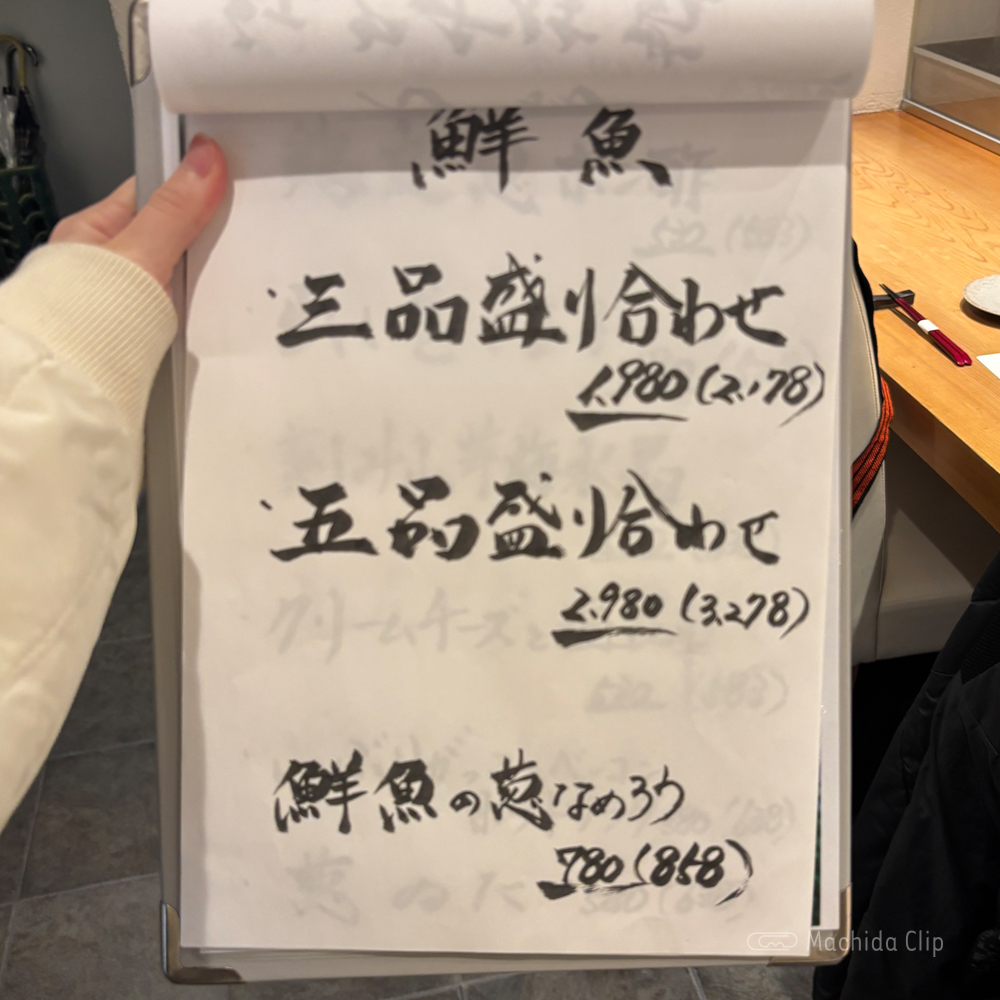 鮮魚
・三品盛り合わせ
1,980(2,178)
・五品盛り合わせ
2,980(3,278)
鮮魚の葱なめろう
780(858)
クリームチーズ
Machida Clip